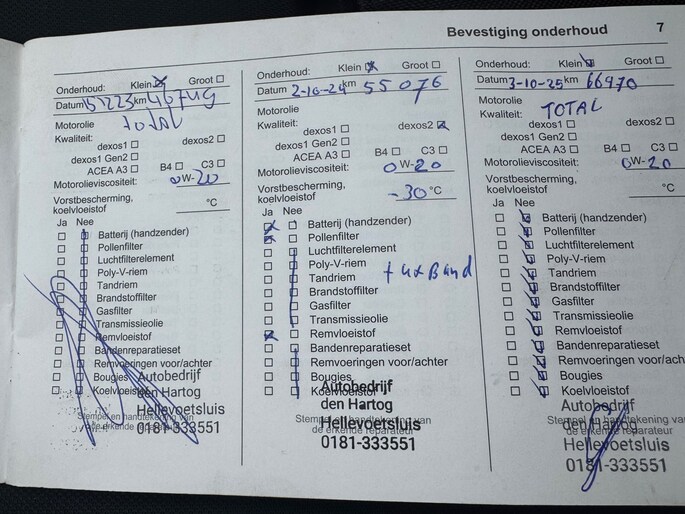 Bevestiging onderhoud 7
Onderhoud: Klein Groot
Datum km 46749
Motorolie total
Kwaliteit:
dexos1 dexos2
dexos1 Gen2
ACEA A3 B4 C3
Motorolieviscositeit: 0W-20
Vorstbescherming,
koelvloeistof °C
Ja Nee
Batterij (handzender)
Pollenfilter
Luchtfilterelement
Poly-V-riem
Tandriem
Brandstoffilter
Gasfilter
Transmissieolie
Remvloeistof
Bandenreparatieset
Remvoeringen voor/achter
Bougies
Koelvloeistof
Autobedrijf
den Hartog
Hellevoetsluis
Stempel en handtekening van
de erkende
0181-333551
Onderhoud: Klein Groot
Datum 2-10-24 km 55076
Motorolie
Kwaliteit:
dexos1 dexos2
dexos1 Gen2
ACEA A3 B4 C3
Motorolieviscositeit: 0W-20
Vorstbescherming,
koelvloeistof -30 °C
Ja Nee
Batterij (handzender)
Pollenfilter
Luchtfilterelement
Poly-V-riem
Tandriem + 4x Band
Brandstoffilter
Gasfilter
Transmissieolie
Remvloeistof
Bandenreparatieset
Remvoeringen voor/achter
Bougies
Koelvloeistof
Autobedrijf
den Hartog
Stempel en handtekening van
Hellevoetsluis
de erkende reparateur
0181-333551
Onderhoud: Klein Groot
Datum 3-10-25 km 66970
Motorolie
Kwaliteit: TOTAL
dexos1 dexos2
dexos1 Gen2
ACEA A3 B4 C3
Motorolieviscositeit: 0W-20
Vorstbescherming,
koelvloeistof °C
Ja Nee
Batterij (handzender)
Pollenfilter
Luchtfilterelement
Poly-V-riem
Tandriem
Brandstoffilter
Gasfilter
Transmissieolie
Remvloeistof
Bandenreparatieset
Remvoeringen voor/achter
Bougies
Koelvloeistof
Autobedrijf
Stempel en handtekening van
den Hartog
de erkende reparateur
Hellevoetsluis
0181-333551